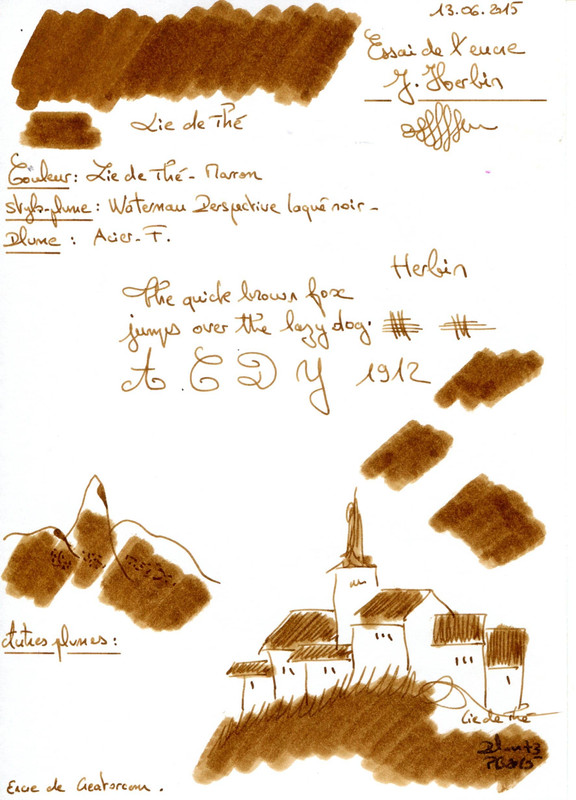 13.06.2015
Essai de l'encre
J. Herbin
Lie de Thé
Couleur : Lie de Thé - Marron
stylo-plume : Waterman Perspective laqué noir -
Plume : Acier - F.
Herbin
The quick brown fox
jumps over the lazy dog.
A C D Y 1912
Autres plumes :
Lie de Thé
PB2015
Encre de